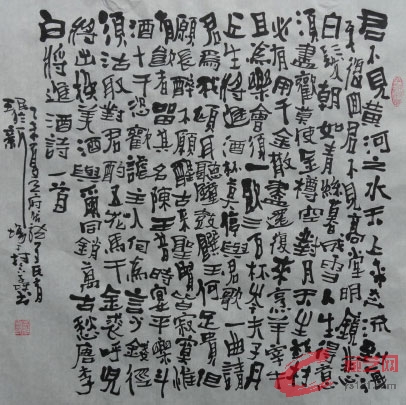 君不見黃河之水天上來奔流到海
不復回君不見高堂明鏡悲
白髮朝如青絲暮成雪人生得意
須盡歡莫使金樽空對月天生我材
必有用千金散盡還復來烹羊宰牛
且為樂會須一飲三百杯岑夫子丹
丘生將進酒杯莫停與君歌一曲請
君為我傾耳聽鐘鼓饌玉何足貴但
願長醉不願醒古來聖賢皆寂寞惟
有飲者留其名陳王昔時宴平樂斗
酒十千恣歡謔主人何為言少錢徑
須沽取對君酌五花馬千金裘呼兒
將出換美酒與爾同銷萬古愁唐李
白將進酒詩一首